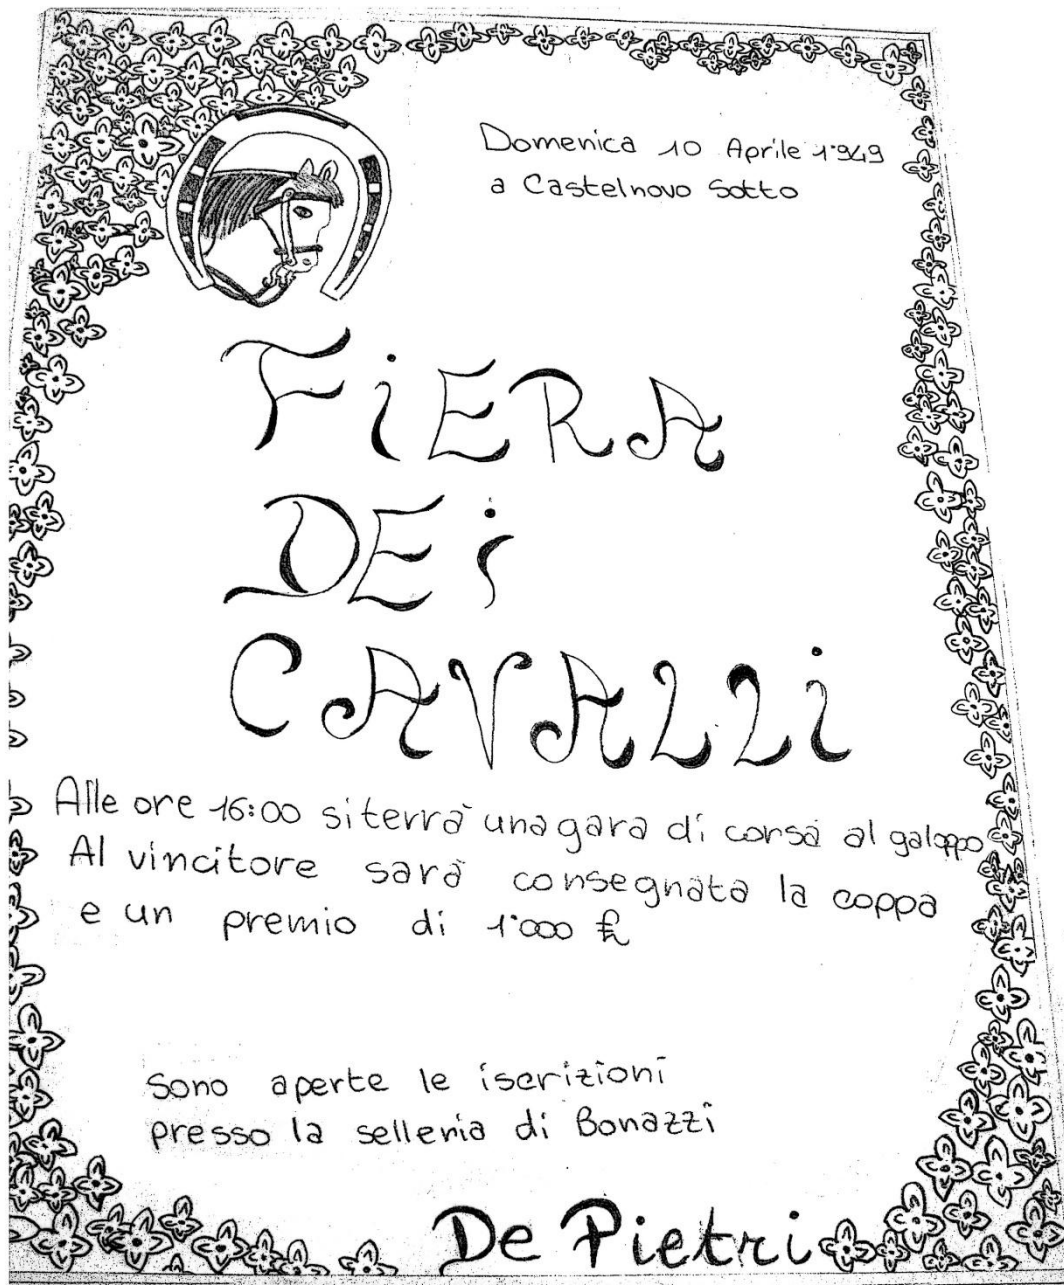 Domenica 10 Aprile 1'949
a Castelnovo Sotto
FiERA
DEi
CAVALLi
Alle ore 16:00 si terrà una gara di corsa al galoppo
Al vincitore sarà consegnata la coppa
e un premio di 1'000 £
Sono aperte le iscrizioni
presso la selleria di Bonazzi
De Pietri